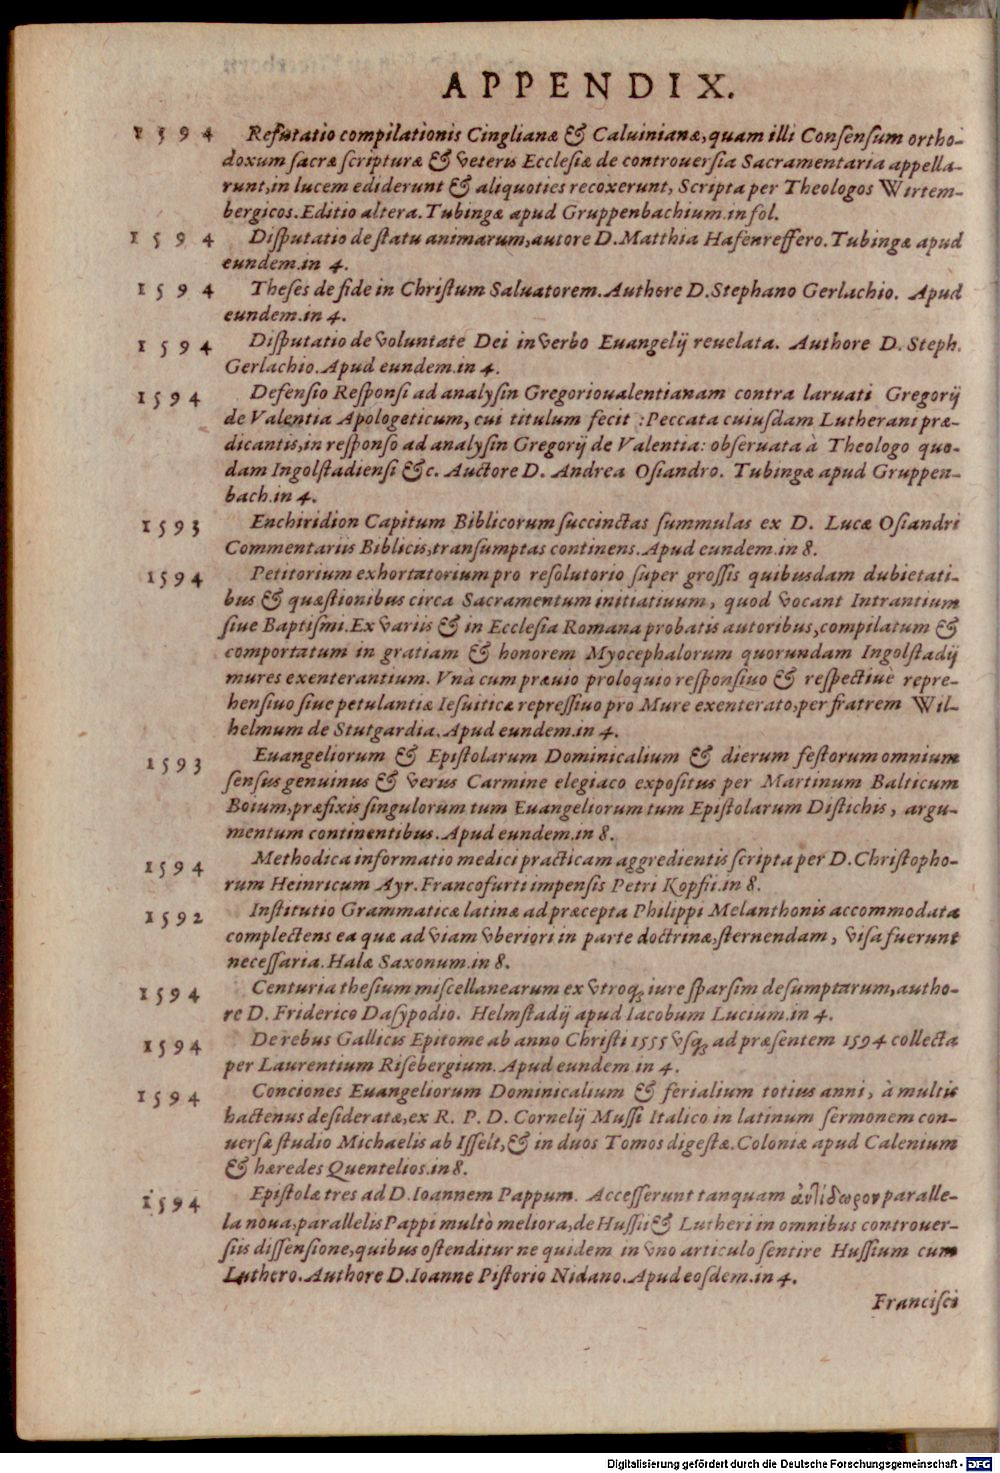 APPENDIX.
1594 Refutatio compilationis Cinglianæ & Caluinianæ, quam illi Conſenſum ortho-
doxum ſacræ ſcripturæ & veteris Eccleſiæ de controuerſia Sacramentaria appella-
runt, in lucem ediderunt & aliquoties recoxerunt, Scripta per Theologos Wirtem-
bergicos. Editio altera. Tubingæ apud Gruppenbachium. in fol.
1594 Diſputatio de ſtatu animarum, autore D. Matthia Hafenreffero. Tubingæ apud
eundem. in 4.
1594 Theſes de fide in Chriſtum Saluatorem. Authore D. Stephano Gerlachio. Apud
eundem. in 4.
1594 Diſputatio de voluntate Dei in verbo Euangelij reuelata. Authore D. Steph.
Gerlachio. Apud eundem. in 4.
1594 Defenſio Reſponſi ad analyſin Gregorioualentianam contra laruati Gregorij
de Valentia Apologeticum, cui titulum fecit : Peccata cuiuſdam Lutherani præ-
dicantis, in reſponſo ad analyſin Gregorij de Valentia: obſeruata à Theologo quo-
dam Ingolſtadienſi &c. Auctore D. Andrea Oſiandro. Tubingæ apud Gruppen-
bach. in 4.
1593 Enchiridion Capitum Biblicorum ſuccinctas ſummulas ex D. Lucæ Oſiandri
Commentariis Biblicis, tranſumptas continens. Apud eundem. in 8.
1594 Petitorium exhortatorium pro reſolutorio ſuper groſſis quibuſdam dubietati-
bus & quæſtionibus circa Sacramentum initiatiuum, quod vocant Intrantium
ſiue Baptiſmi. Ex variis & in Eccleſia Romana probatis autoribus, compilatum &
comportatum in gratiam & honorem Myocephalorum quorundam Ingolſtadij
mures exenterantium. Vnà cum præuio proloquio reſponſiuo & reſpectiue repre-
henſiuo ſiue petulantiæ Ieſuiticæ repreſſiuo pro Mure exenterato, per fratrem Wil-
helmum de Stutgardia. Apud eundem. in 4.
1593 Euangeliorum & Epiſtolarum Dominicalium & dierum feſtorum omnium
ſenſus genuinus & verus Carmine elegiaco expoſitus per Martinum Balticum
Boium, præfixis ſingulorum tum Euangeliorum tum Epiſtolarum Diſtichis, argu-
mentum continentibus. Apud eundem. in 8.
1594 Methodica informatio medici practicam aggredientis ſcripta per D. Chriſtopho-
rum Heinricum Ayr. Francofurti impenſis Petri Kopfii. in 8.
1592 Inſtitutio Grammaticæ latinæ ad præcepta Philippi Melanthonis accommodata
complectens ea quæ ad viam vberiori in parte doctrinæ, ſternendam, viſa fuerunt
neceſſaria. Halæ Saxonum. in 8.
1594 Centuria theſium miſcellanearum ex vtroq; iure ſparſim deſumptarum, autho-
re D. Friderico Daſypodio. Helmſtadij apud Iacobum Lucium. in 4.
1594 De rebus Gallicis Epitome ab anno Chriſti 1555 vſq; ad præſentem 1594 collecta
per Laurentium Riſebergium. Apud eundem in 4.
1594 Conciones Euangeliorum Dominicalium & ferialium totius anni, à multis
hactenus deſideratæ, ex R. P. D. Cornelij Muſſi Italico in latinum ſermonem con-
uerſæ ſtudio Michaelis ab Iſſelt, & in duos Tomos digeſtæ. Coloniæ apud Calenium
& hæredes Quentelios. in 8.
1594 Epiſtolæ tres ad D. Ioannem Pappum. Acceſſerunt tanquam ἀντίδωρον paralle-
la noua, parallelis Pappi multò meliora, de Huſſii & Lutheri in omnibus controuer-
ſiis diſſenſione, quibus oſtenditur ne quidem in vno articulo ſentire Huſſium cum
Luthero. Authore D. Ioanne Piſtorio Nidano. Apud eoſdem. in 4.
Franciſci
Digitalisierung gefördert durch die Deutsche Forschungsgemeinschaft - DFG